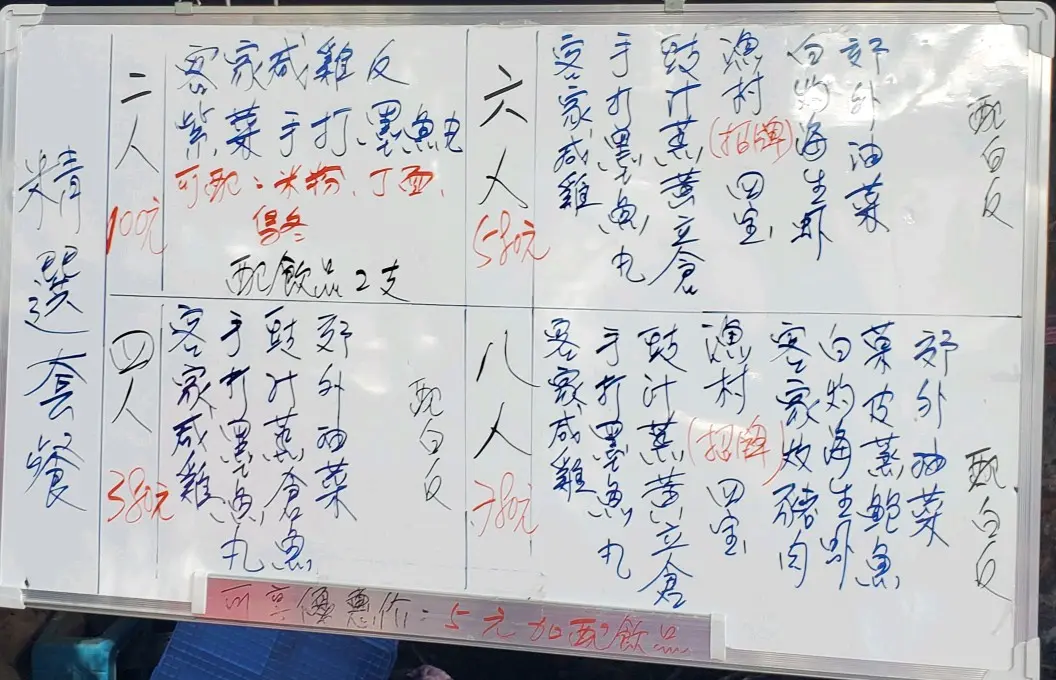 精選套餐
二人
100元
客家咸雞反
紫菜手打墨魚丸
可配：米粉、丁面、
配飲品2支
四人
380元
客家咸雞
手打墨魚丸
豉汁蒸倉魚
郊外油菜
配白反
六人
580元
客家咸雞
手打墨魚丸
豉汁蒸黄立倉
漁村(招牌)四宝
白灼海生虾
郊外油菜
配白反
八人
780元
客家咸雞
手打墨魚丸
豉汁蒸黄立倉
漁村(招牌)四宝
客家炆豬肉
白灼海生虾
菜皮蒸鲍魚
郊外油菜
配白反
可享優惠价：5元加配飲品